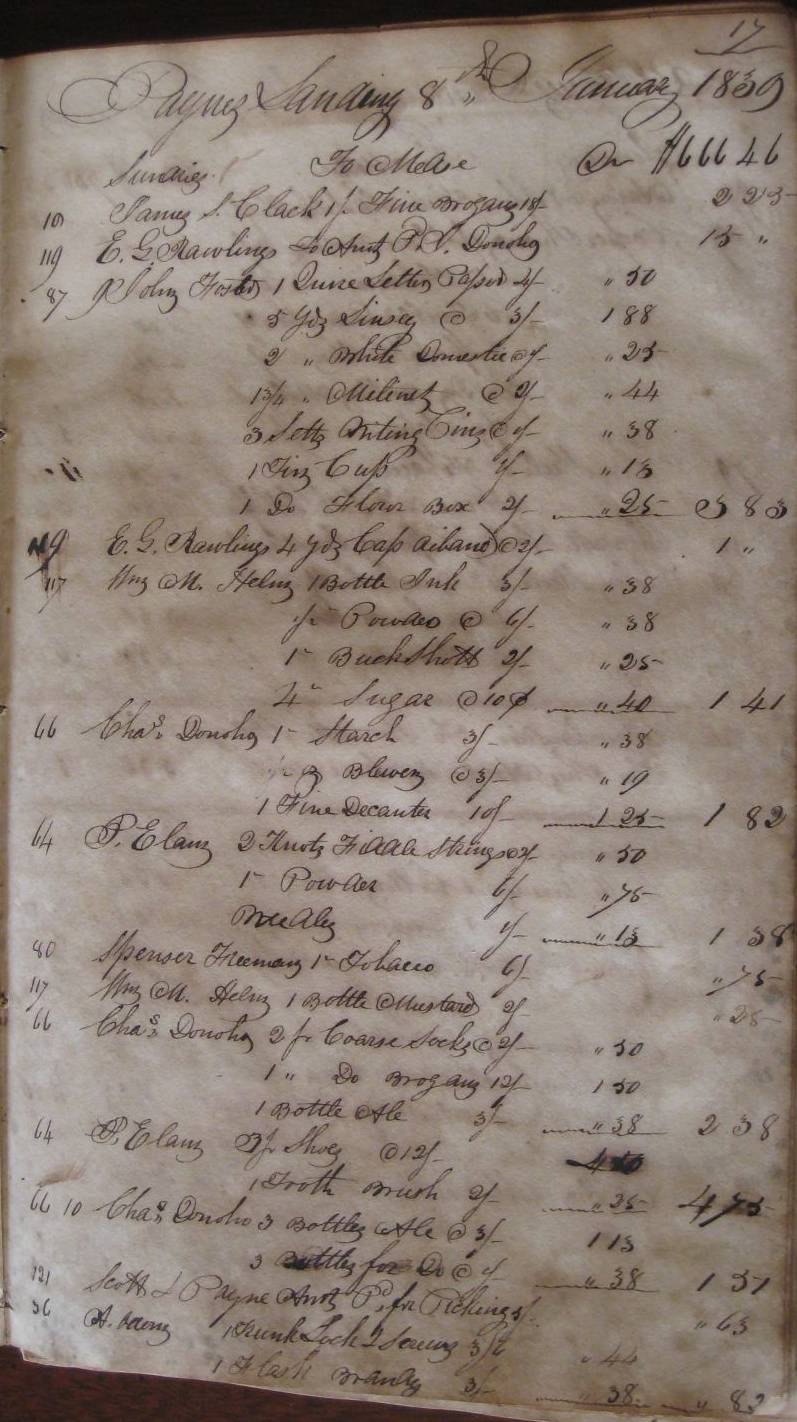 17
Paynes Landing 8th January 1839
Sundries To Mdse Dr $666 46
101 James S. Clack 1 pr Fine Brogans 18/- 2 25
119 E. G. Rawlings to Amt Pd. Donoho 15 "
87 John Foster 1 Quire Letter Paper 4/- " 50
5 Yds Linsey @ 3/- 1 88
2 " White Domestic @ 1/- " 25
1 3/4 " Milinet @ 2/- " 44
3 Setts Knting Pins @ 1/- " 38
1 Tin Cup 1/- " 13
1 Do Flour Box 2/- " 25 3 83
119 E. G. Rawlings 4 Yds Cap Riband @ 2/- 1 "
117 Wm M. Helm 1 Bottle Ink 3/- " 38
Powder @ 6/- " 38
1 " Buck Shott 2/- " 25
4 " Sugar @ 10 ¢ " 40 1 41
66 Chas. Donoho 1 " Starch 3/- " 38
@ 3/- " 19
1 Fine Decanter 10/- 1 25 1 82
64 P. Elam 2 Knots Fiddle Strings @ 2/- " 50
1 " Powder 6/- " 75
1/- " 13 1 38
80 Spenser Freeman 1 " Tobacco 6/- " 75
117 Wm M. Helm 1 Bottle Mustard 2/- " 25
66 Chas. Donoho 2 pr Coarse Socks @ 2/- " 50
1 " Do Brogans 12/- 1 50
1 Bottle Ale 3/- " 38 2 38
64 P. Elam 3 pr Shoes @ 12/- 4 50
1 Tooth Brush 2/- " 25 4 75
66 10 Chas. Donoho 3 Bottles Ale @ 3/- 1 13
3 Bottles for Do @ 1/- " 38 1 51
121 Scott & Payne Amt Pd. for 5/- " 63
36 1 Trunk Lock & Screws 3/6 " 44
1 Flask Brandy 3/- " 38 " 82